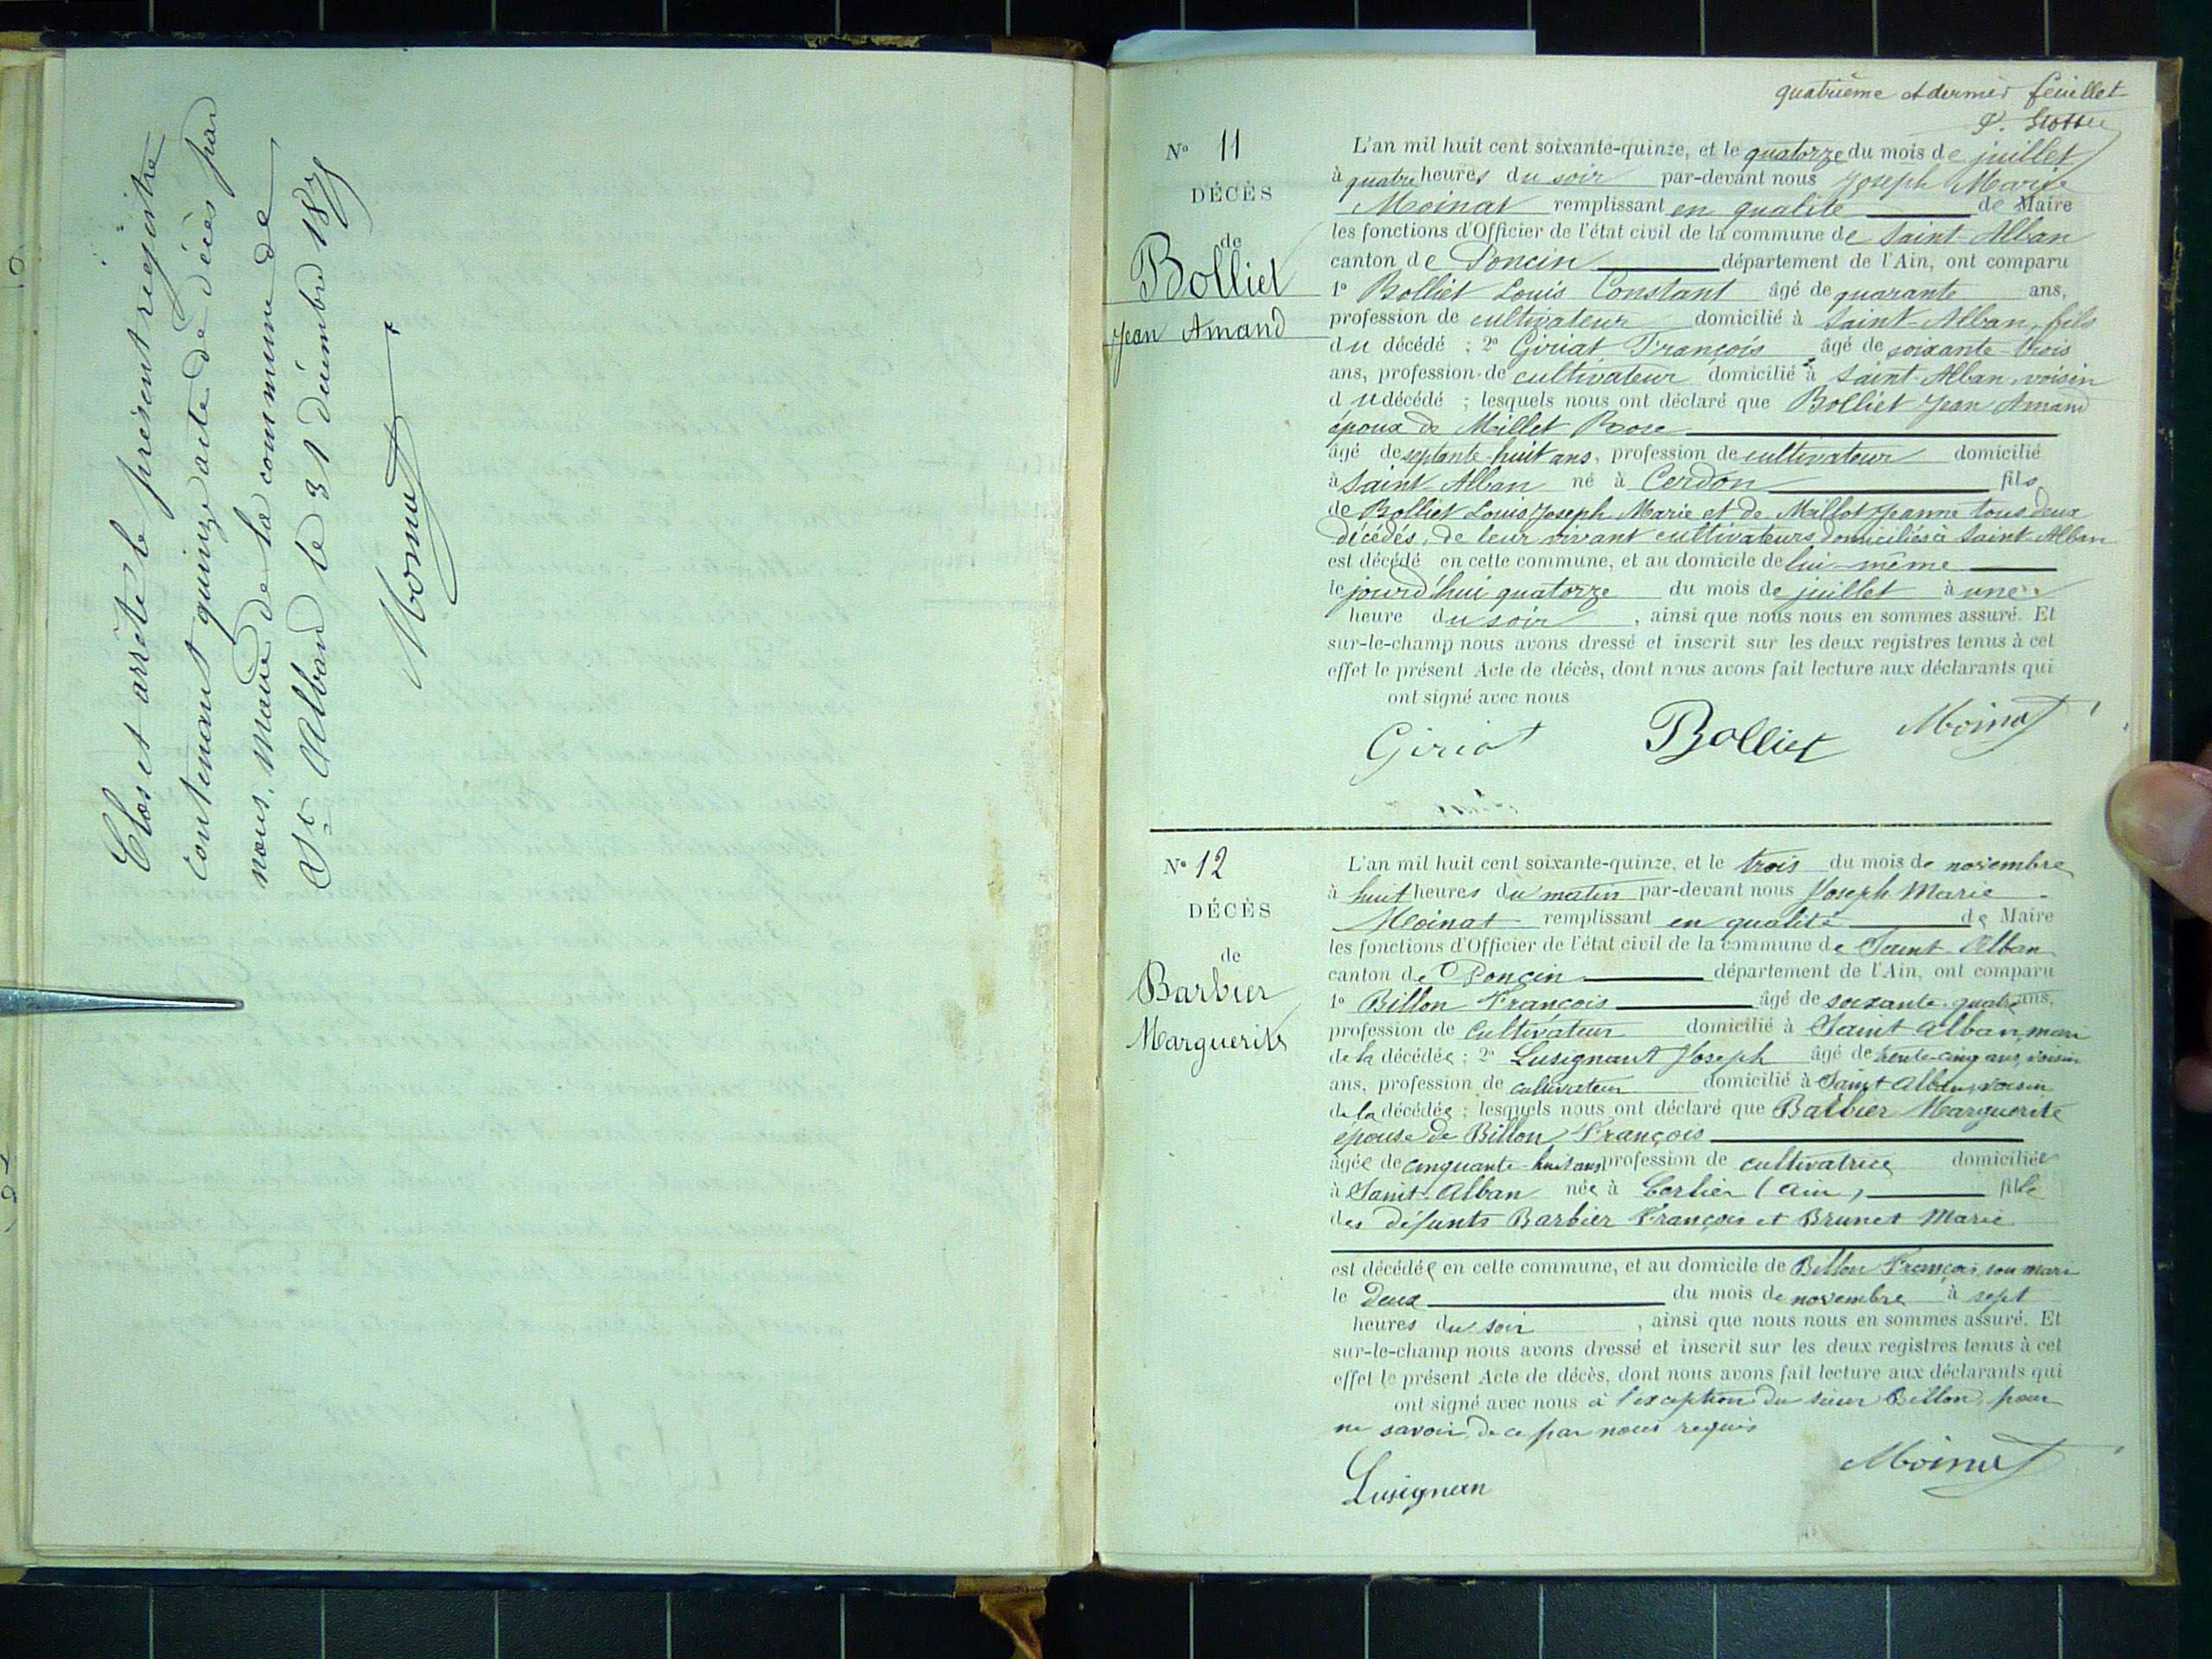 Clos et arrêté le présent registre
contenant quinze acte de décès par
nous, Maire de la commune de
St Alban le 31 Décembre 1875
Moinat
quatrième et dernier feuillet
N° 11
DÉCÈS
de
Bolliet
Jean Amand
L'an mil huit cent soixante-quinze, et le quatorze du mois de juillet
à quatre heures du soir par-devant nous Joseph Marie
Moinat remplissant en qualité de Maire
les fonctions d'Officier de l'état civil de la commune de Saint-Alban
canton de Poncin département de l'Ain, ont comparu
1° Bolliet Louis Constant âgé de quarante ans,
profession de cultivateur domicilié à Saint-Alban, fils
du décédé ; 2° Giriat François âgé de soixante-trois
ans, profession de cultivateur domicilié à Saint-Alban, voisin
du décédé ; lesquels nous ont déclaré que Bolliet Jean Amand
époux de Millet Rose
âgé de septante-huit ans, profession de cultivateur domicilié
à Saint Alban né à Cerdon fils
de Bolliet Louis Joseph Marie et de Millot Jeanne tous deux
décédés, de leur vivant cultivateurs domiciliés à Saint-Alban
est décédé en cette commune, et au domicile de lui-même
le jourd'hui quatorze du mois de juillet à une
heure du soir, ainsi que nous nous en sommes assuré. Et
sur-le-champ nous avons dressé et inscrit sur les deux registres tenus à cet
effet le présent Acte de décès, dont nous avons fait lecture aux déclarants qui
ont signé avec nous
Giriat Bolliet Moinat
N° 12
DÉCÈS
de
Barbier
Marguerite
L'an mil huit cent soixante-quinze, et le trois du mois de novembre
à huit heures du matin par-devant nous Joseph Marie
Moinat remplissant en qualité de Maire
les fonctions d'Officier de l'état civil de la commune de Saint-Alban
canton de Poncin département de l'Ain, ont comparu
1° Billon François âgé de soixante-quatre ans,
profession de Cultivateur domicilié à Saint Alban, mari
de la décédée ; 2° Lusignant Joseph âgé de trente-cinq ans, voisin
ans, profession de cultivateur domicilié à Saint Alban, voisin
de la décédée ; lesquels nous ont déclaré que Barbier Marguerite
épouse de Billon François
âgée de cinquante-huit ans, profession de cultivatrice domiciliée
à Saint-Alban née à Corlier (Ain) fille
des défunts Barbier François et Brunet Marie
est décédée en cette commune, et au domicile de Billon François, son mari
le Deux du mois de novembre à sept
heures du soir, ainsi que nous nous en sommes assuré. Et
sur-le-champ nous avons dressé et inscrit sur les deux registres tenus à cet
effet le présent Acte de décès, dont nous avons fait lecture aux déclarants qui
ont signé avec nous à l'exception du sieur Billon, pour
ne savoir, de ce par nous requis
Lusignan Moinat